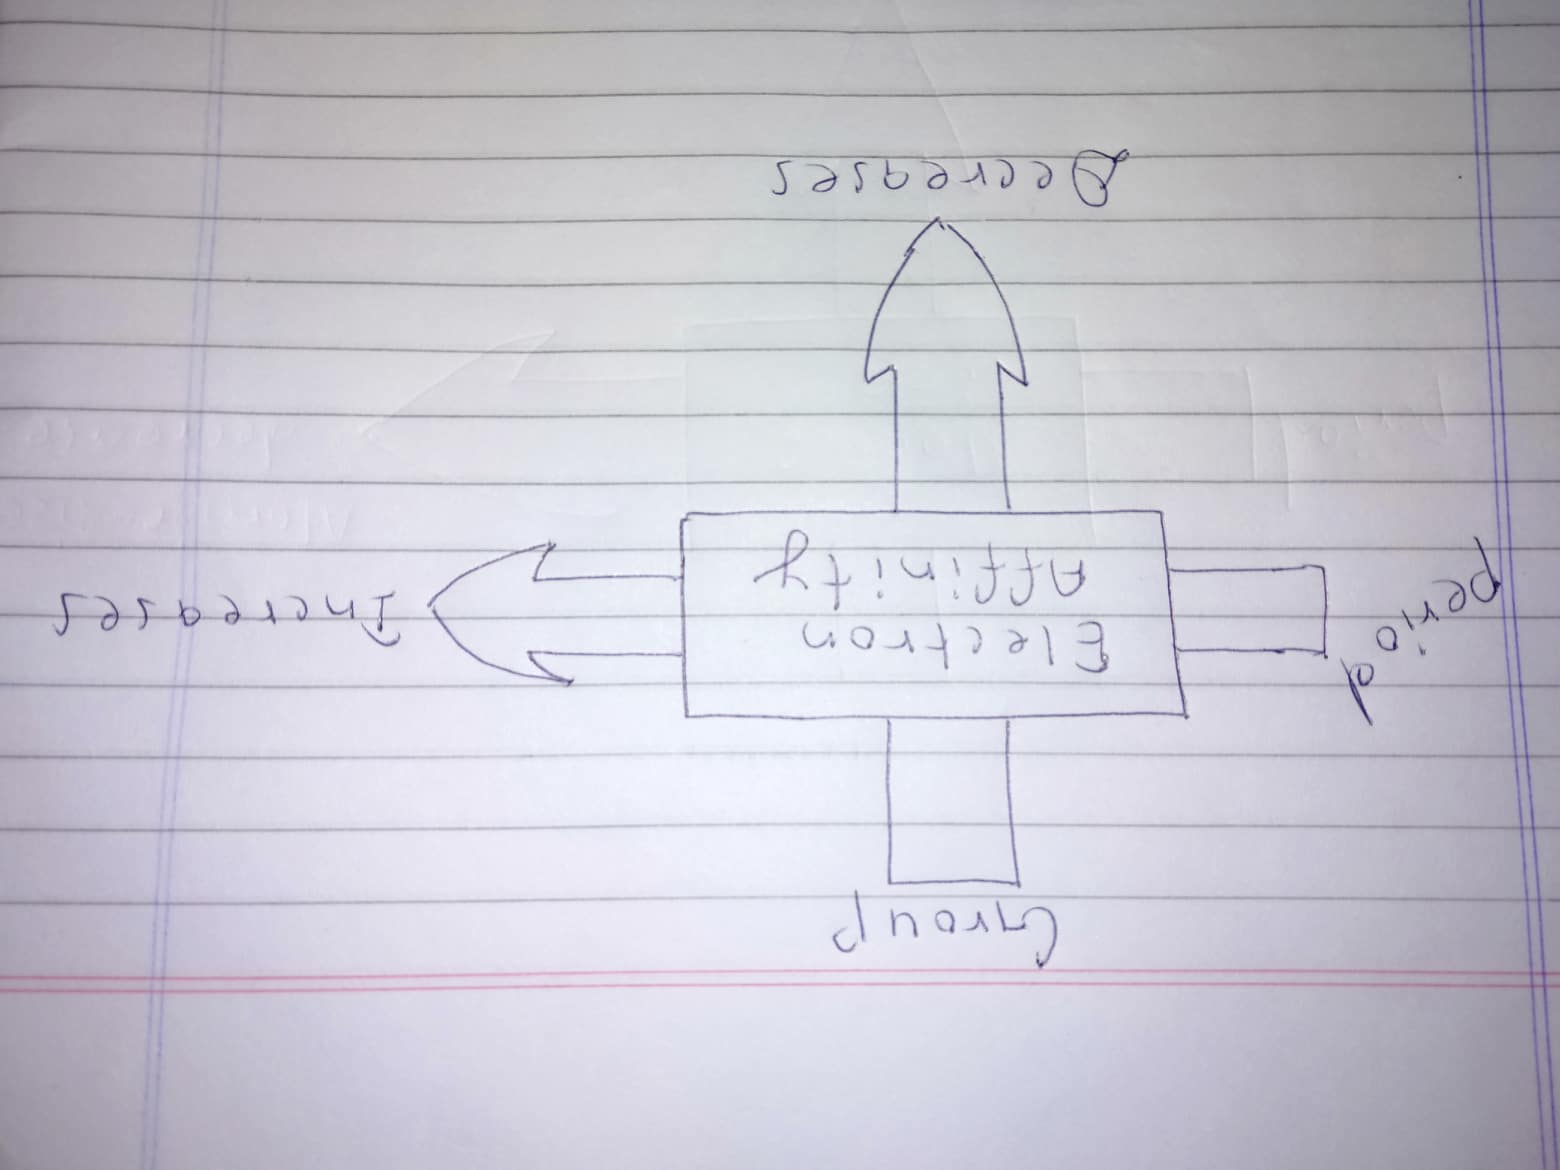 Group
period
Electron
Affinity
Increases
Decreases